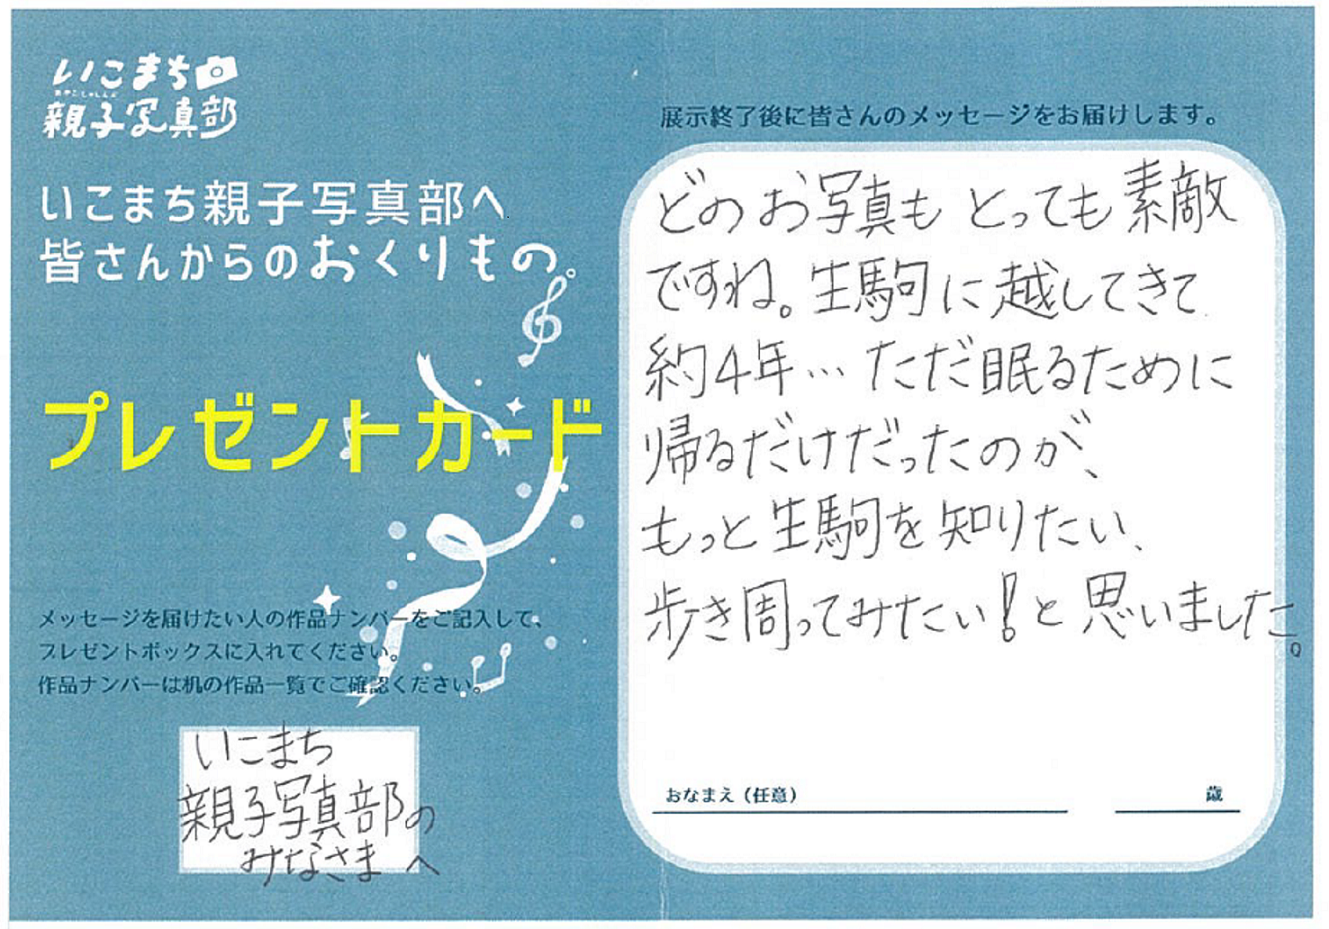 いこまち
おやこしゃしんぶ
親子写真部
いこまち親子写真部へ
皆さんからのおくりもの。
プレゼントカード
メッセージを届けたい人の作品ナンバーをご記入して、
プレゼントボックスに入れてください。
作品ナンバーは机の作品一覧でご確認ください。
いこまち
親子写真部の
みなさまへ
展示終了後に皆さんのメッセージをお届けします。
どのお写真もとっても素敵
ですね。生駒に越してきて
約4年…ただ眠るために
帰るだけだったのが、
もっと生駒を知りたい、
歩き周ってみたい!と思いました。
おなまえ(任意) 歳